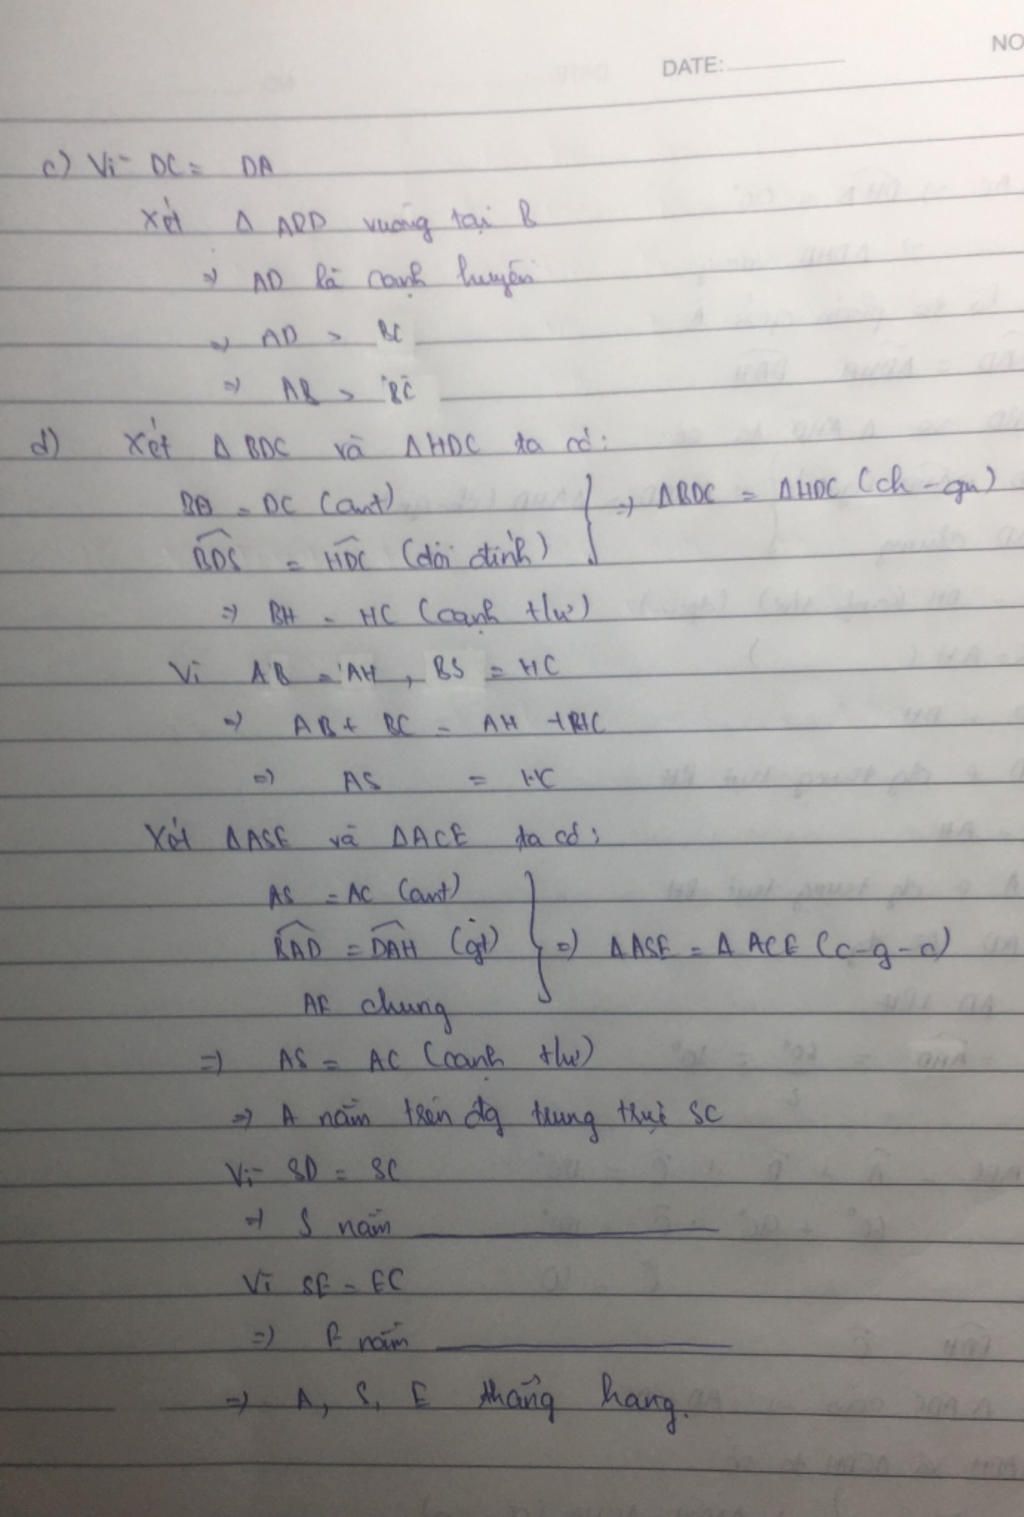 NO
DATE:
c) Vì DC = DA
Xét Δ ABD vuông tại B
=> AD là cạnh huyền
=> AD > BC
=> AB > BC
d) Xét Δ BDC và Δ HDC ta có:
BD = DC (cmt)
BDS = HDC (đối đỉnh)
=> ΔBDC = ΔHDC (ch - gn)
=> BH = HC (cạnh t/ư)
Vì AB = AH, BS = HC
=> AB + BC = AH + HC
=> AS = HC
Xét ΔASE và ΔACE ta có:
AS = AC (cmt)
BAD = DAH (gt)
=> ΔASE = Δ ACE (c-g-c)
AE chung
=> AS = AC (cạnh t/ư)
=> A nằm trên đg trung trực SC
Vì SD = SC
=> S nằm
Vì SE = EC
=> E nằm
=> A, S, E thẳng hàng.